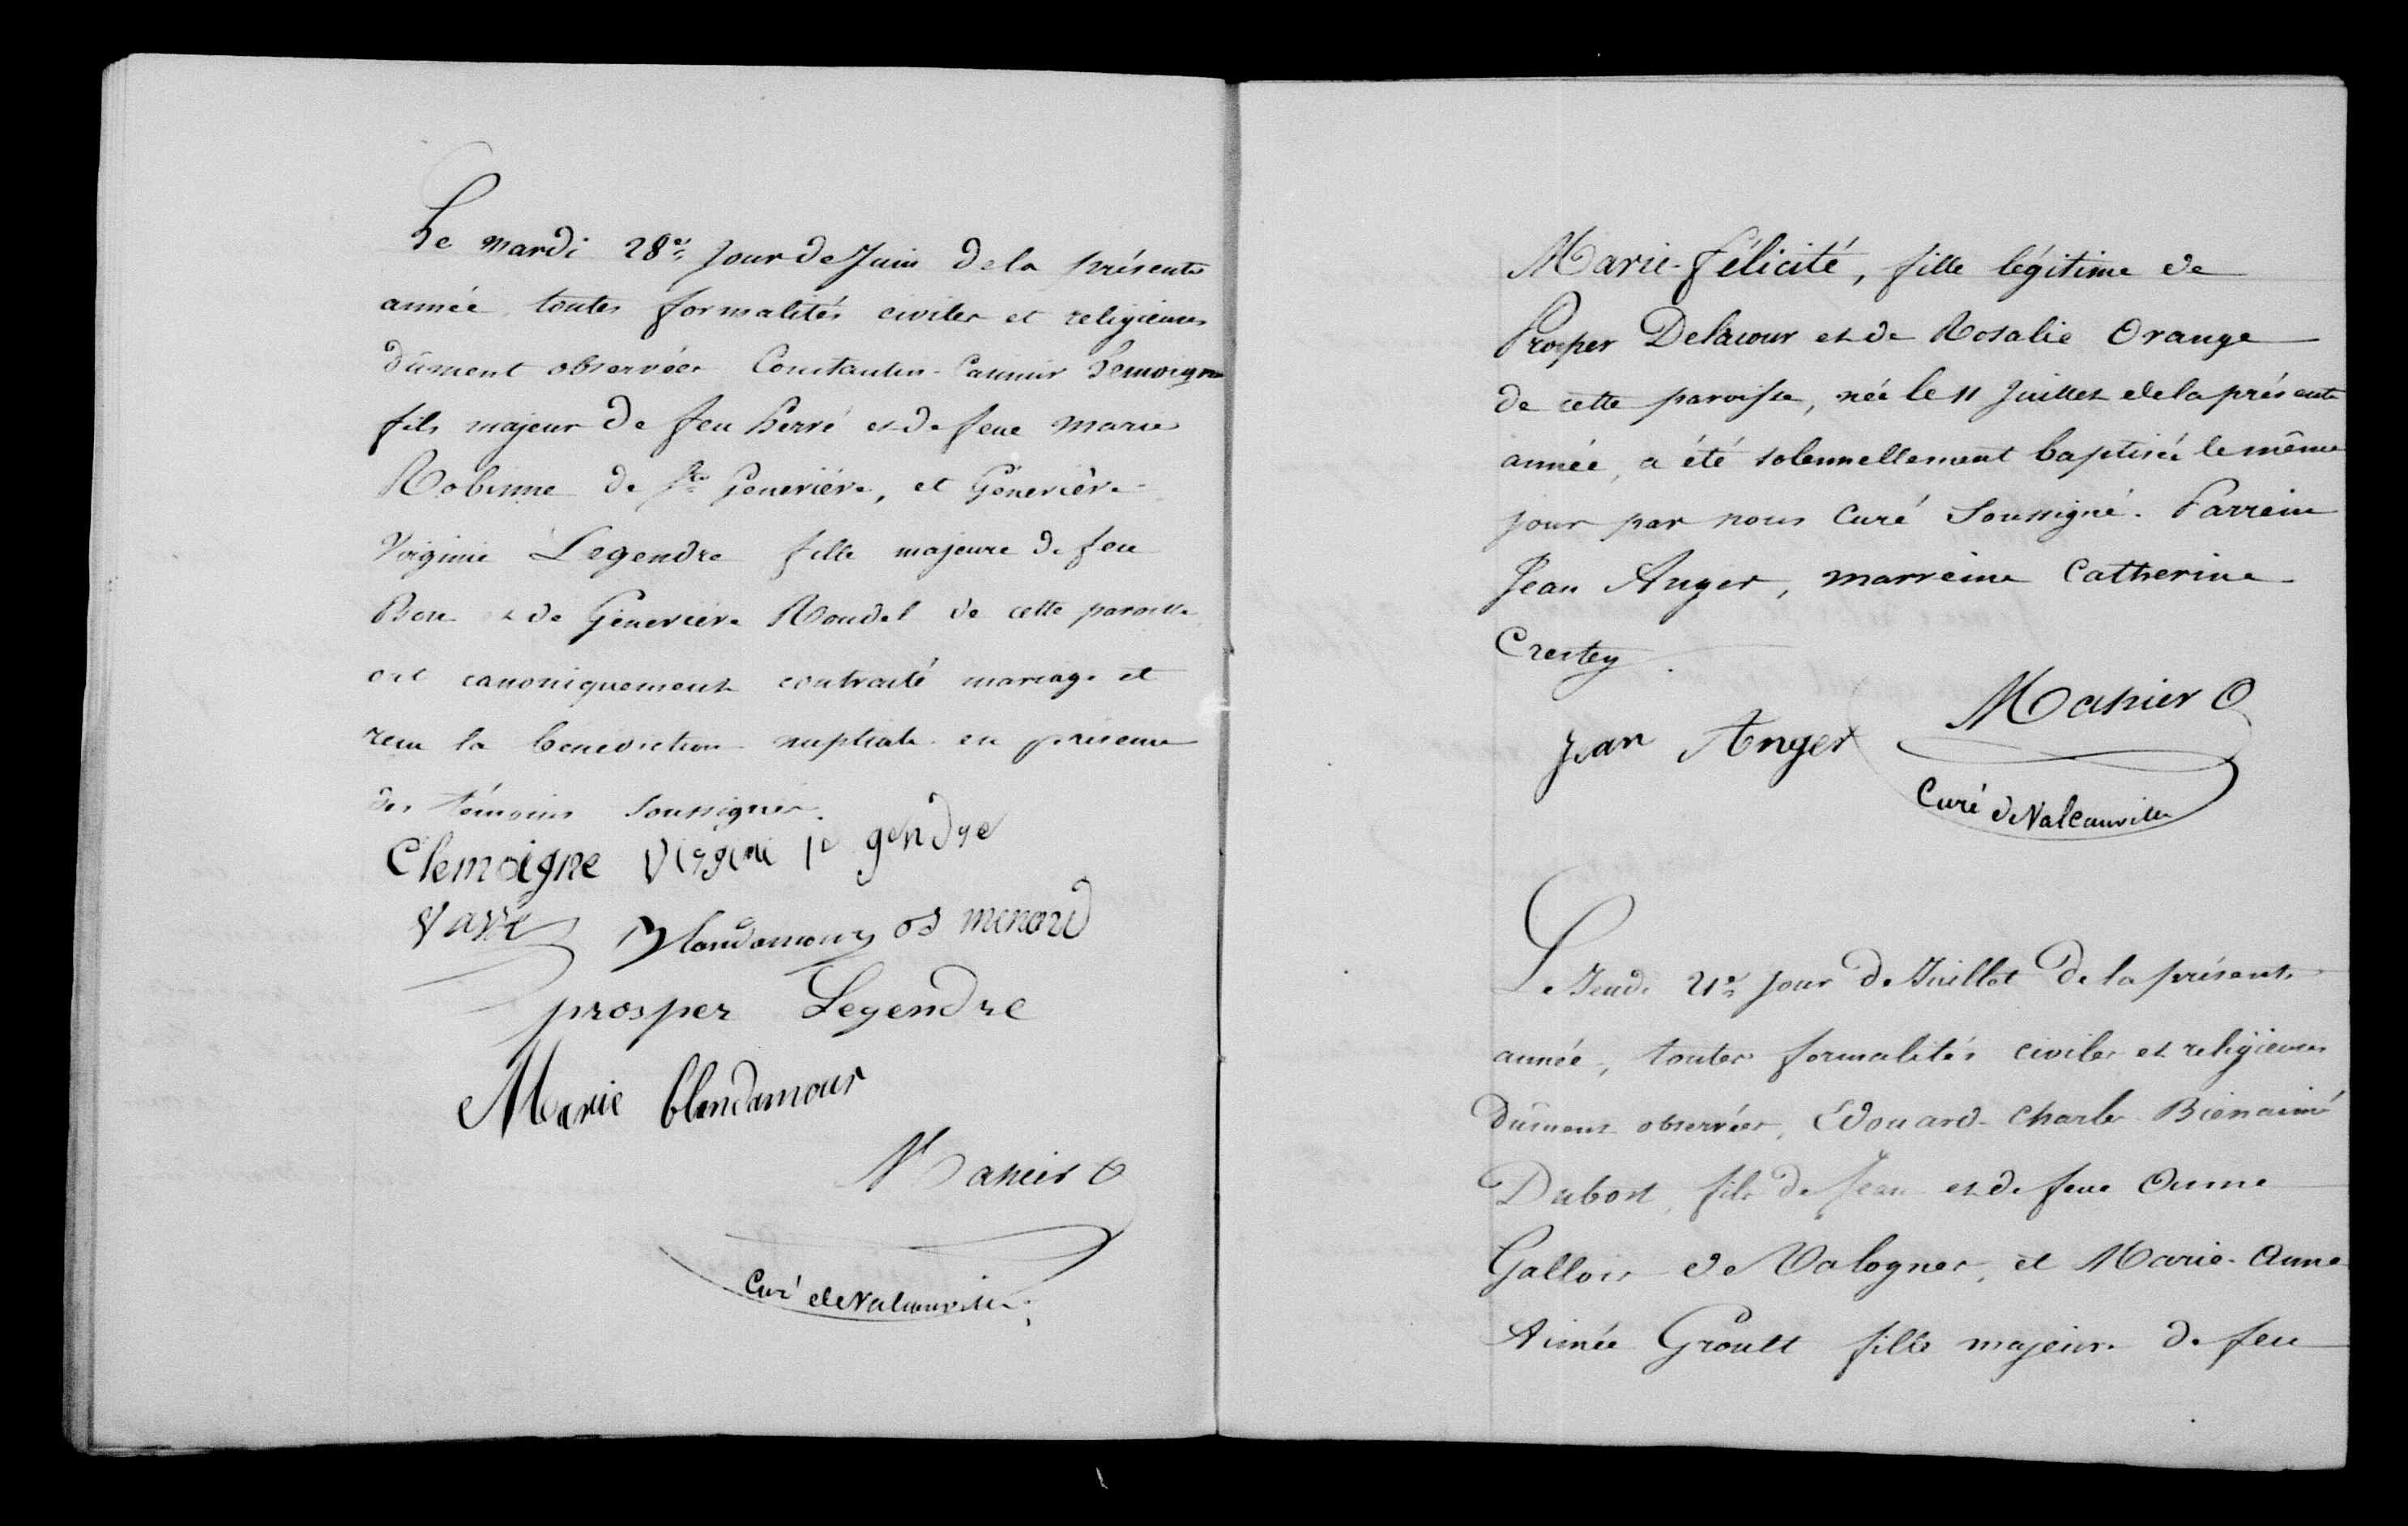 Le mardi 28e Jour de Juin de la présente
année toutes formalités civiles et religieuses
dûment observées Constantin-Casimir Lemoigne
fils majeur de feu hervé et de feue Marie
Robinne de Ste Geneviève, et Géneviève
Virginie Legendre fille majeure de feu
Bon et de Géneviève Roudel de cette paroisse
ont canoniquement contracté mariage et
reçu la bénédiction nuptiale en présence
des témoins soussignés.
Clemoigne Virgini le gendre
Varré Blandamour os menard
prosper Legendre
Marie blandamour
Mahier
Curé de Valcanville
Marie-félicité, fille légitime de
Prosper Delacour et de Rosalie Orange
de cette paroisse, née le 11 Juillet de la présente
année, a été solennellement baptisée le même
jour par nous Curé Soussigné. Parrein
Jean Anger, marreine Catherine
Crestey
Jean Anger Mahier
Curé de Valcanville
Le Jeudi 21e jour de Juillet de la présente
année, toutes formalités civiles et religieuses
dûment observées, Edouard-Charles-Bienaimé
Dubost, fils de Jean et de feue Anne
Gallois de Valognes, et Marie-Anne
Aimée Groult fille majeure de feu